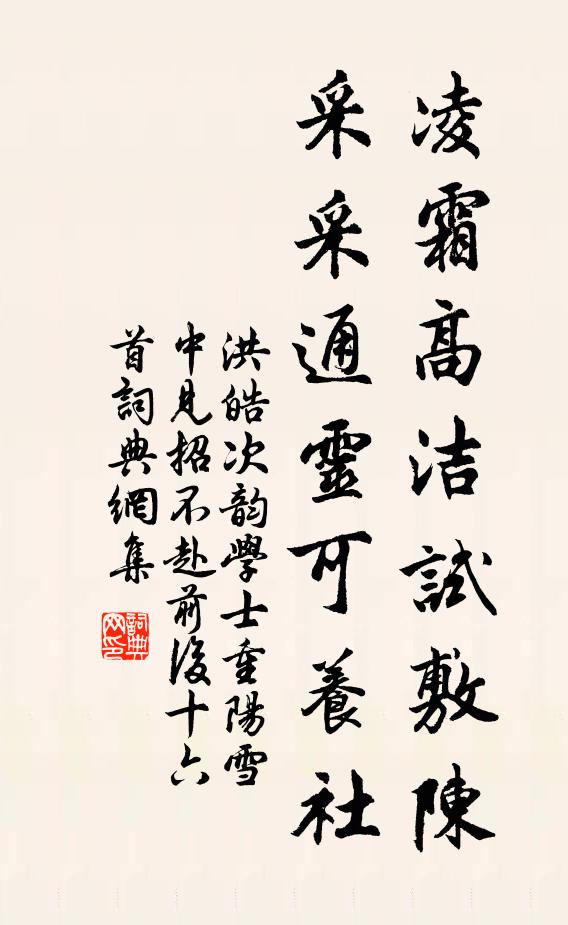 凌霜高洁試敷陳
采采通靈可養社
洪皓次韵學士重陽雪
中見招不赴前後十六
首詞典網集
詞典网印